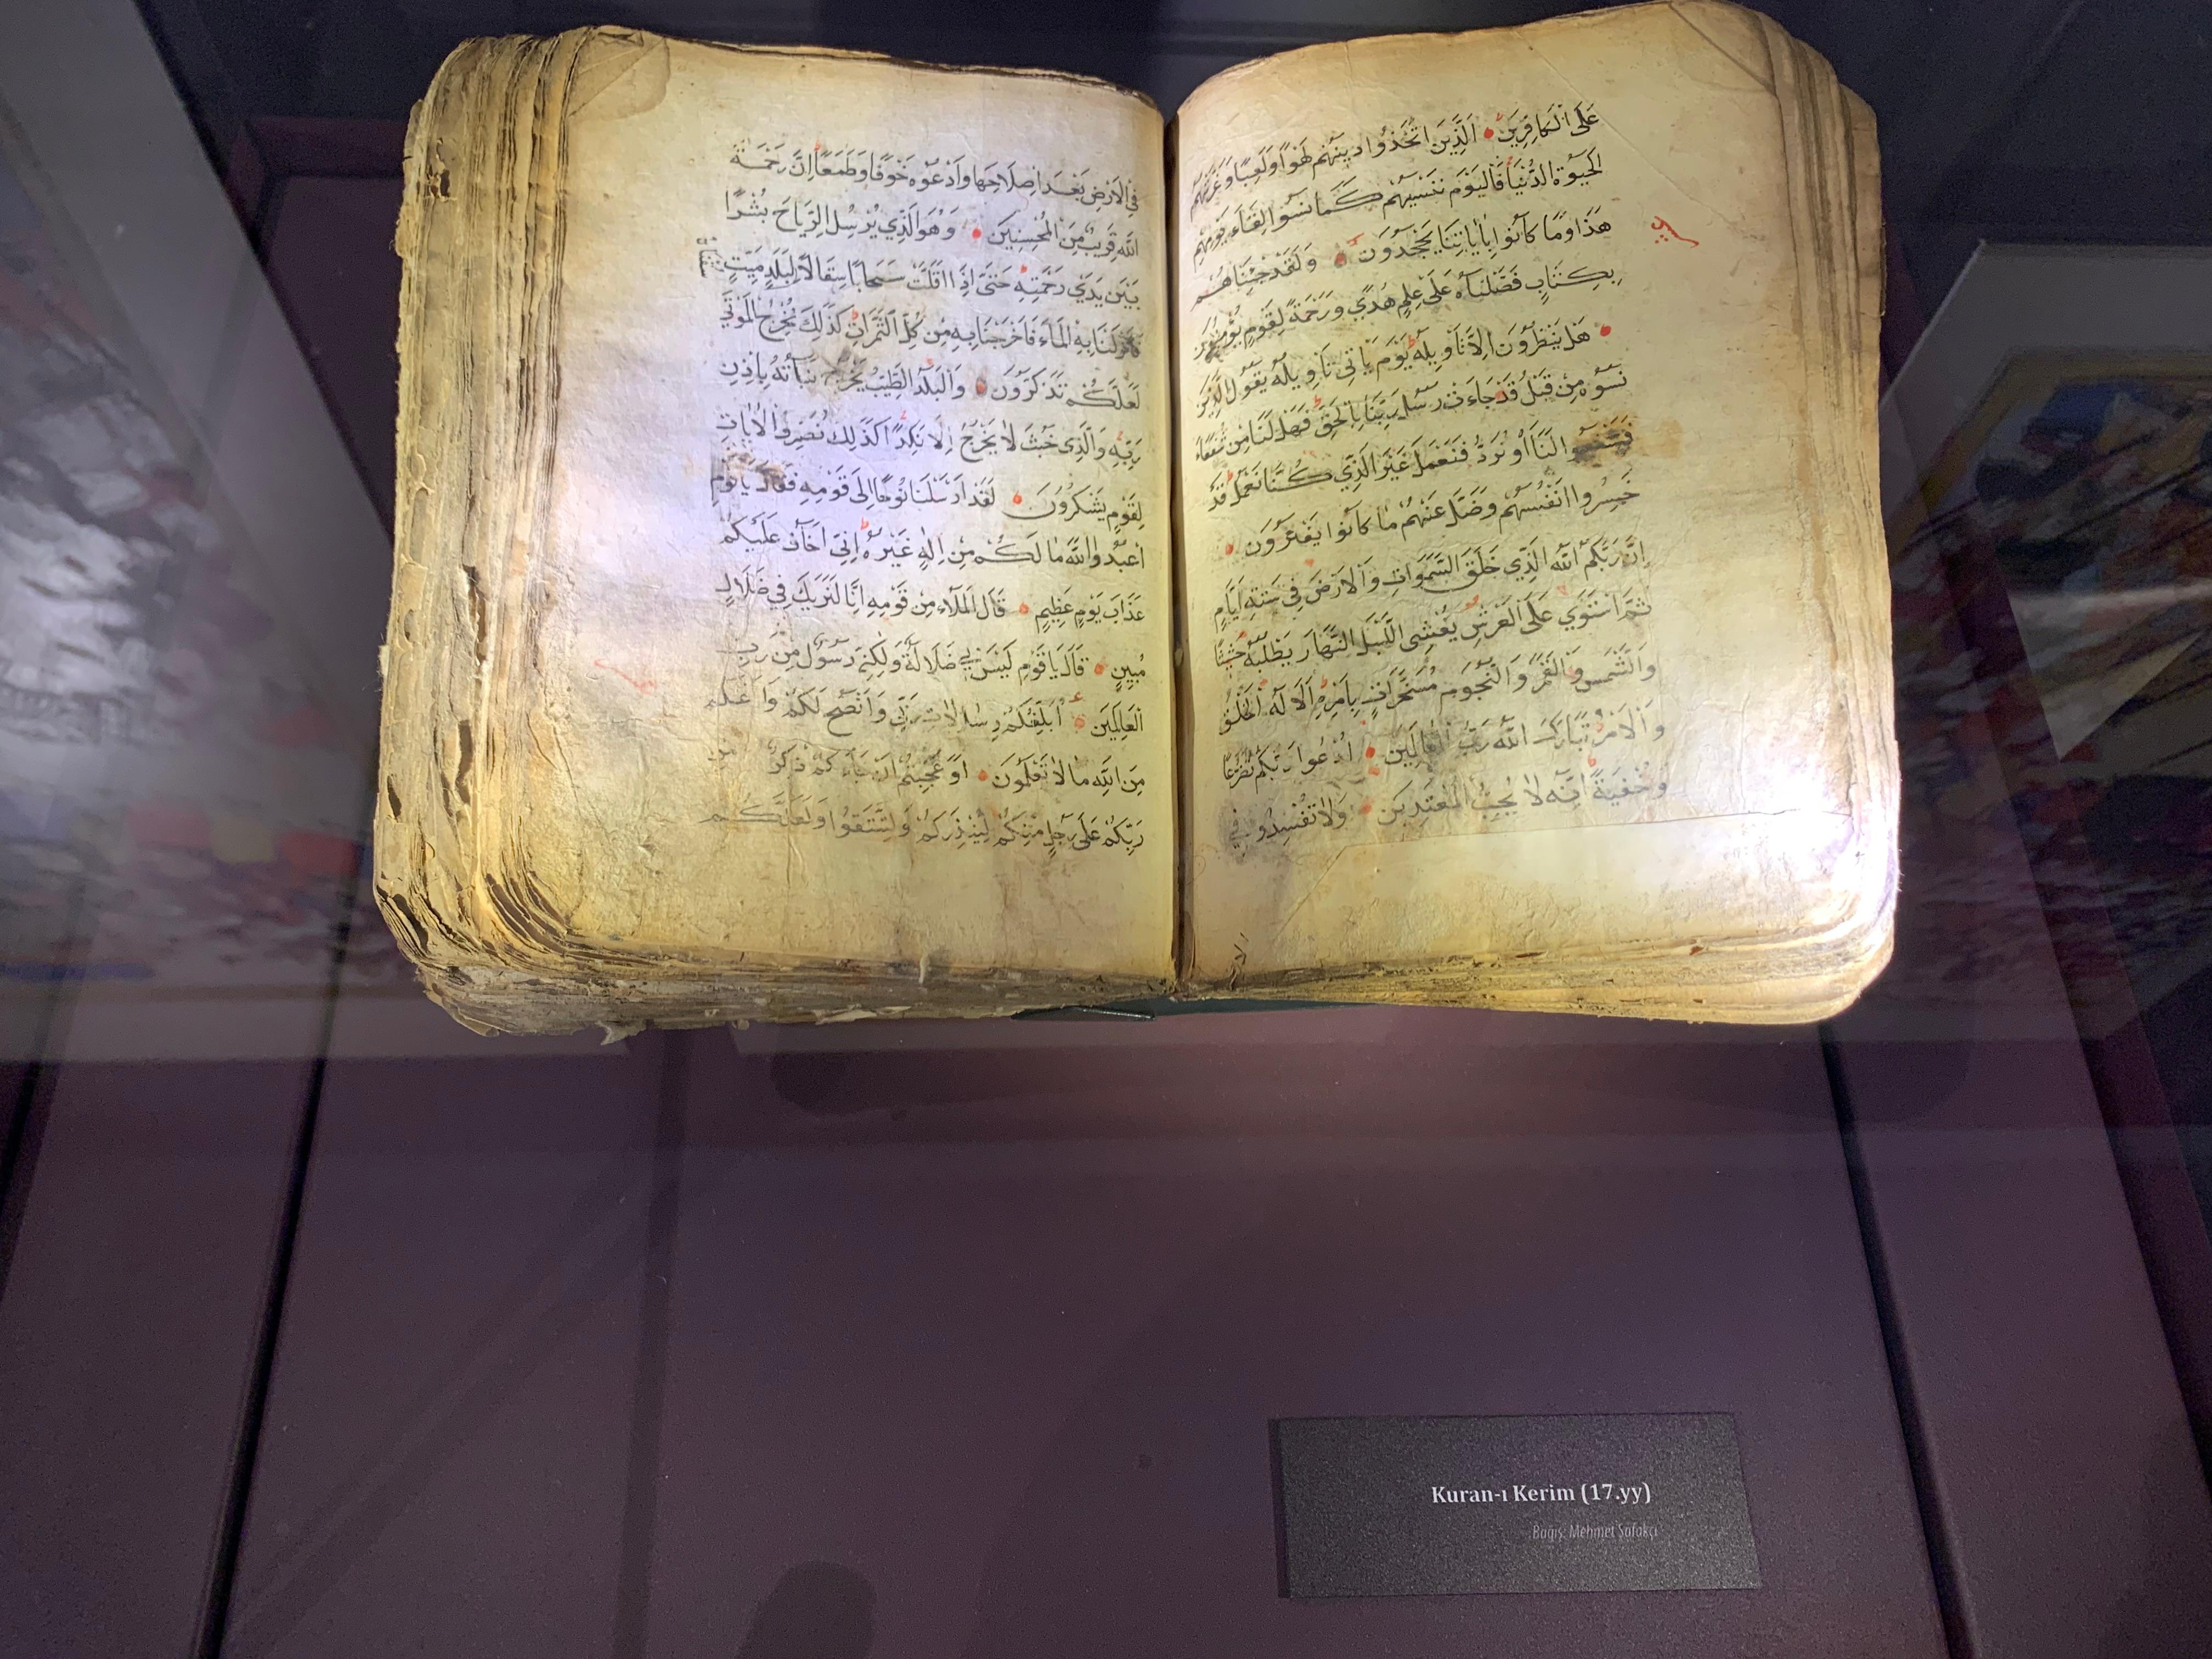 عَلَى الْكَافِرِينَ الَّذِينَ اتَّخَذُوا دِينَهُمْ لَهْوًا وَلَعِبًا وَغَرَّتْهُمُ
الْحَيٰوةُ الدُّنْيَا فَالْيَوْمَ نَنْسٰيهُمْ كَمَا نَسُوا لِقَاءَ يَوْمِهِمْ
هٰذَا وَمَا كَانُوا بِاٰيَاتِنَا يَجْحَدُونَ وَلَقَدْ جِئْنَاهُمْ
بِكِتَابٍ فَصَّلْنَاهُ عَلٰى عِلْمٍ هُدًى وَرَحْمَةً لِقَوْمٍ يُؤْمِنُونَ
هَلْ يَنْظُرُونَ اِلَّا تَأْوِيلَهُ يَوْمَ يَأْتِي تَأْوِيلُهُ يَقُولُ الَّذِينَ
نَسُوهُ مِنْ قَبْلُ قَدْ جَاءَتْ رُسُلُ رَبِّنَا بِالْحَقِّ فَهَلْ لَنَا مِنْ شُفَعَاءَ
لَنَا اَوْ نُرَدُّ فَنَعْمَلَ غَيْرَ الَّذِي كُنَّا نَعْمَلُ قَدْ
خَسِرُوا اَنْفُسَهُمْ وَضَلَّ عَنْهُمْ مَا كَانُوا يَفْتَرُونَ
اِنَّ رَبَّكُمُ اللّٰهُ الَّذِي خَلَقَ السَّمٰوَاتِ وَالْاَرْضَ فِي سِتَّةِ اَيَّامٍ
ثُمَّ اسْتَوٰي عَلَى الْعَرْشِ يُغْشِي اللَّيْلَ النَّهَارَ يَطْلُبُهُ حَثِيثًا
وَالشَّمْسَ وَالْقَمَرَ وَالنُّجُومَ مُسَخَّرَاتٍ بِاَمْرِهِ اَلَا لَهُ الْخَلْقُ
وَالْاَمْرُ تَبَارَكَ اللّٰهُ رَبُّ الْعَالَمِينَ اُدْعُوا رَبَّكُمْ تَضَرُّعًا
وَخُفْيَةً اِنَّهُ لَا يُحِبُّ الْمُعْتَدِينَ وَلَا تُفْسِدُوا فِي
فِي الْاَرْضِ بَعْدَ اِصْلَاحِهَا وَادْعُوهُ خَوْفًا وَطَمَعًا اِنَّ رَحْمَةَ
اللّٰهِ قَرِيبٌ مِنَ الْمُحْسِنِينَ وَهُوَ الَّذِي يُرْسِلُ الرِّيَاحَ بُشْرًا
بَيْنَ يَدَيْ رَحْمَتِهِ حَتّٰى اِذَا اَقَلَّتْ سَحَابًا ثِقَالًا لِبَلَدٍ مَيِّتٍ
بِهِ الْمَاءَ فَاَخْرَجْنَا بِهِ مِنْ كُلِّ الثَّمَرَاتِ كَذٰلِكَ نُخْرِجُ الْمَوْتٰى
لَعَلَّكُمْ تَذَكَّرُونَ وَالْبَلَدُ الطَّيِّبُ يَخْرُجُ نَبَاتُهُ بِاِذْنِ
رَبِّهِ وَالَّذِي خَبُثَ لَا يَخْرُجُ اِلَّا نَكِدًا كَذٰلِكَ نُصَرِّفُ الْاٰيَاتِ
لِقَوْمٍ يَشْكُرُونَ لَقَدْ اَرْسَلْنَا نُوحًا اِلٰى قَوْمِهِ فَقَالَ يَا قَوْمِ
اعْبُدُوا اللّٰهَ مَا لَكُمْ مِنْ اِلٰهٍ غَيْرُهُ اِنِّي اَخَافُ عَلَيْكُمْ
عَذَابَ يَوْمٍ عَظِيمٍ قَالَ الْمَلَاءُ مِنْ قَوْمِهِ اِنَّا لَنَرٰيكَ فِي ضَلَالٍ
مُبِينٍ قَالَ يَا قَوْمِ لَيْسَ بِي ضَلَالَةٌ وَلٰكِنِّي رَسُولٌ مِنْ رَبِّ
الْعَالَمِينَ اُبَلِّغُكُمْ رِسَالَاتِ رَبِّي وَاَنْصَحُ لَكُمْ وَاَعْلَمُ
مِنَ اللّٰهِ مَا لَا تَعْلَمُونَ اَوَعَجِبْتُمْ اَنْ جَاءَكُمْ ذِكْرٌ مِنْ
رَبِّكُمْ عَلٰى رَجُلٍ مِنْكُمْ لِيُنْذِرَكُمْ وَلِتَتَّقُوا وَلَعَلَّكُمْ
Kuran-ı Kerim (17.yy)
Bağış: Mehmet Şafakçı